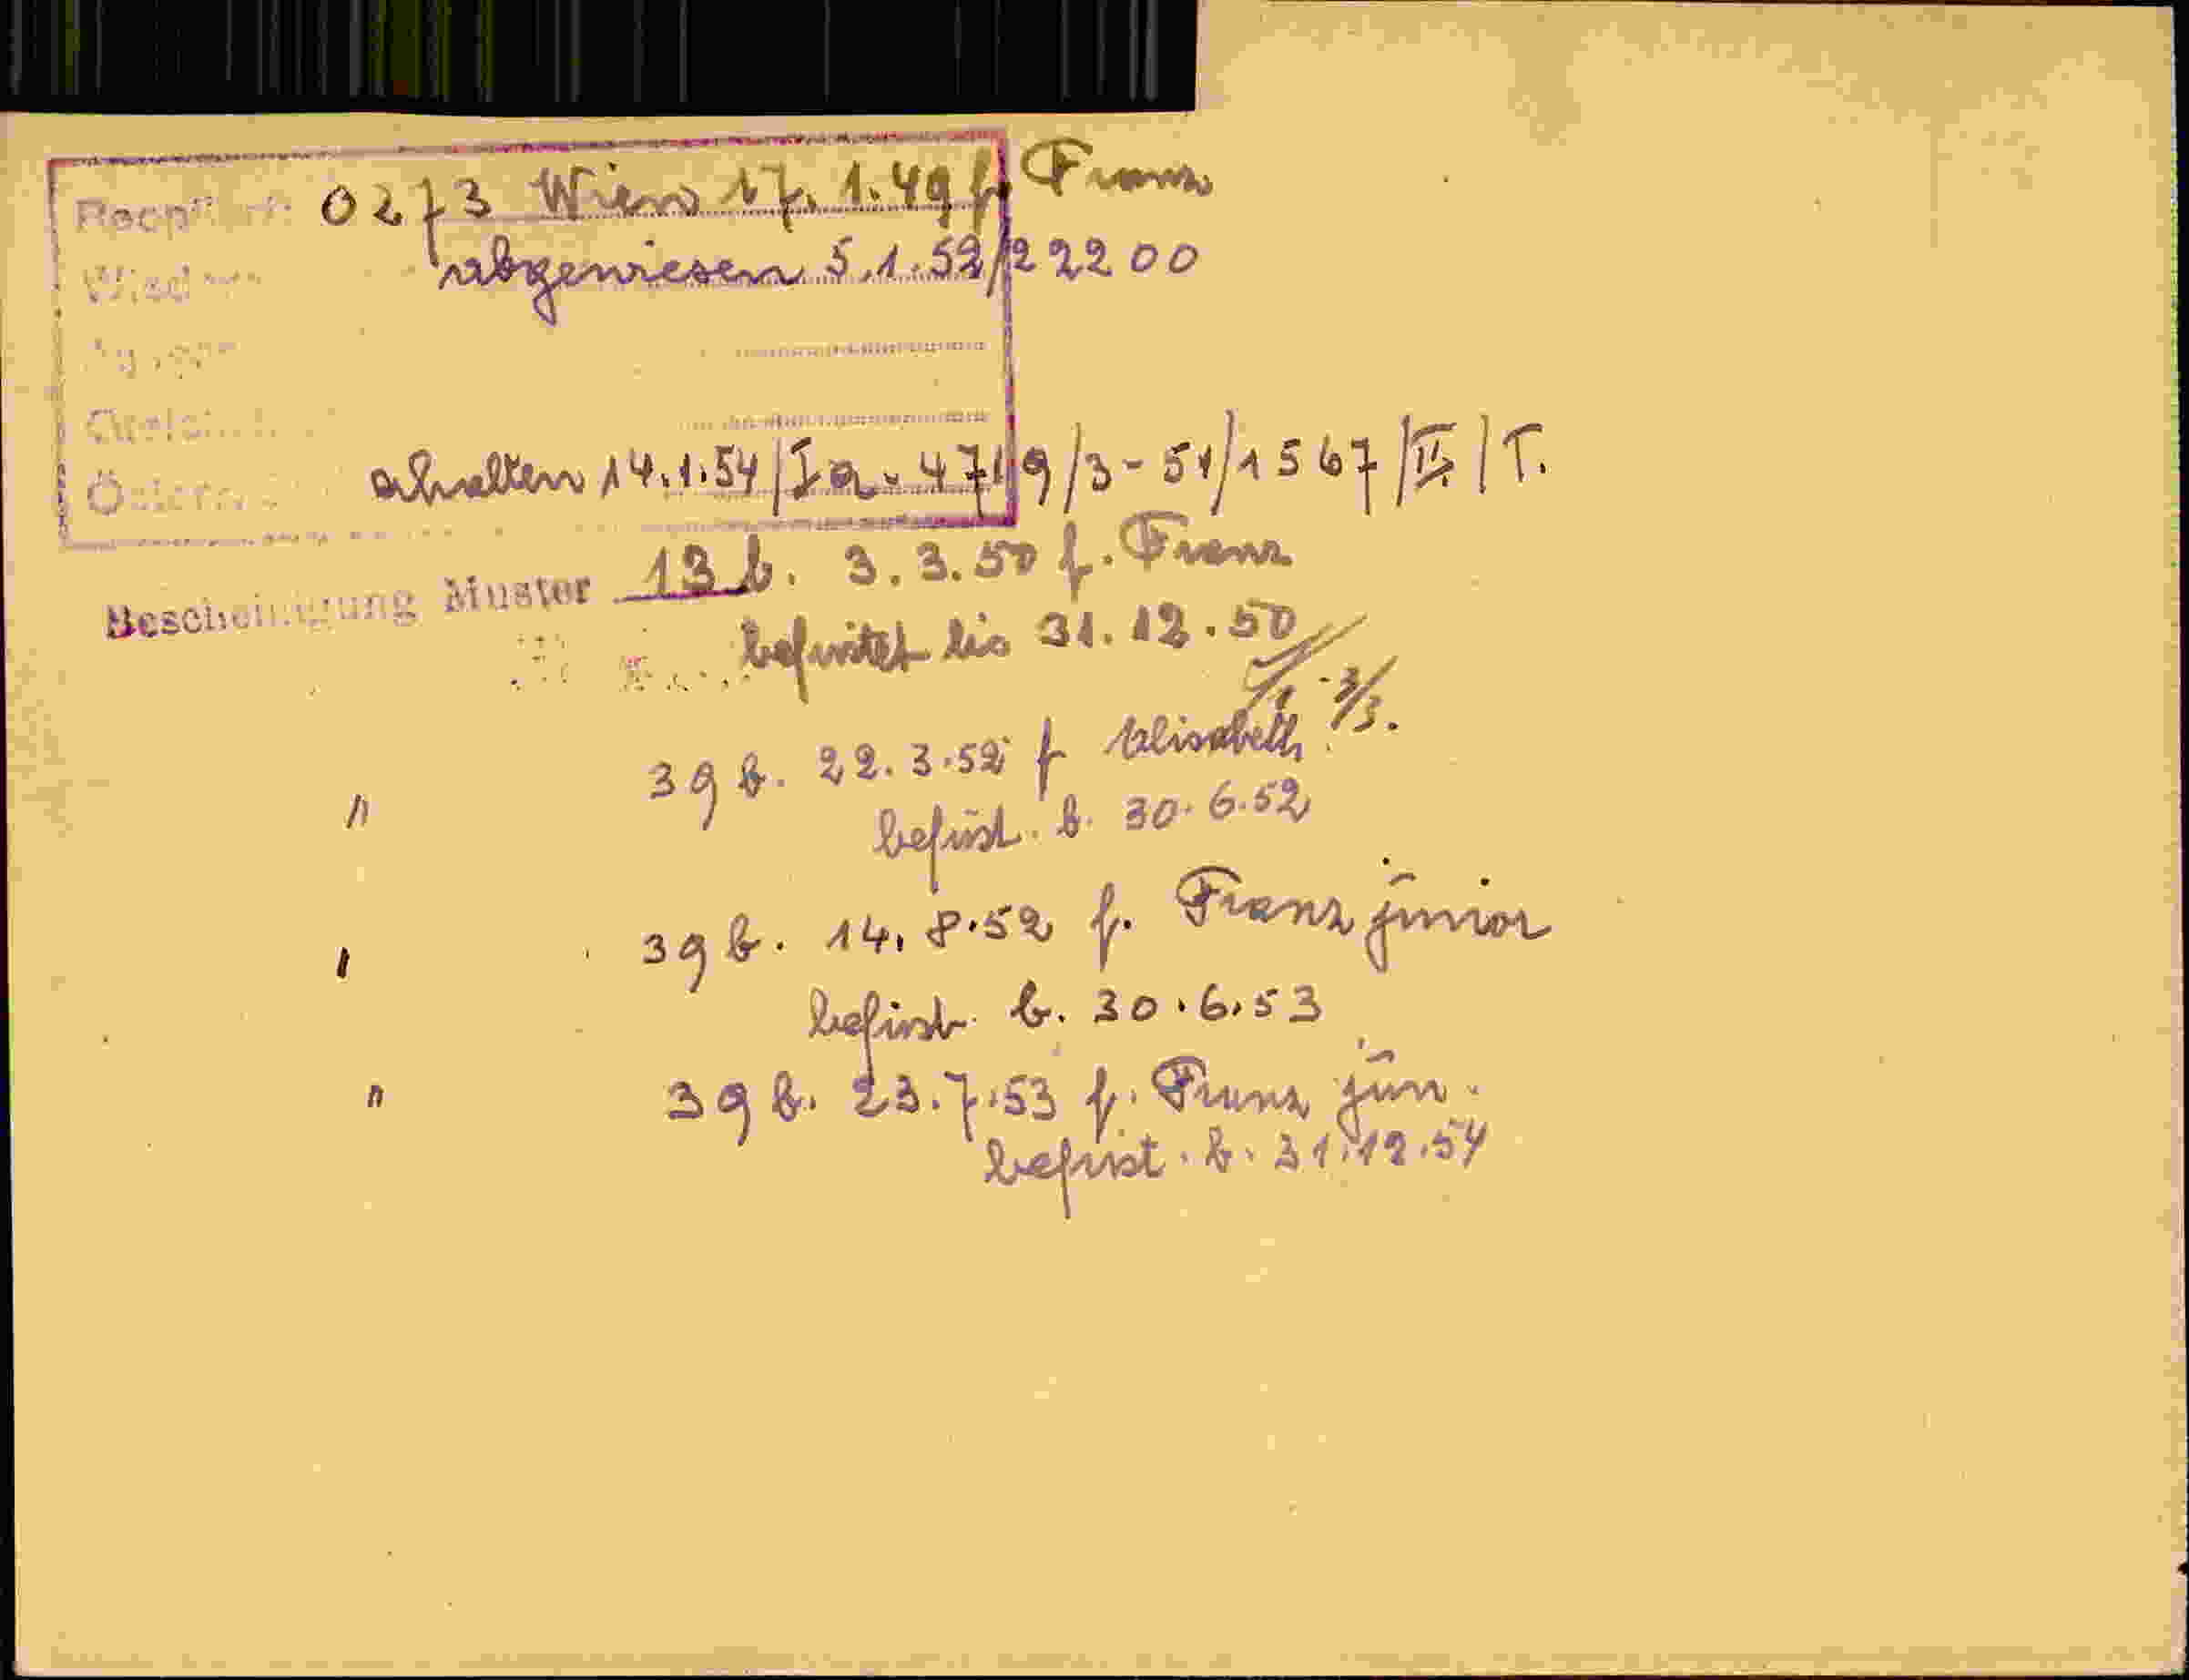 0273 Wien 17.1.49 f. Franz
abgewiesen 5.1.52/22200
erhalten 14.1.54/Ia.4719/3-51/1567/II/T.
Bescheinigung Muster 13 b. 3.3.50 f. Franz
befristet bis 31.12.50
" 39 b. 22.3.52 f Elisabeth
befrist. b. 30.6.52
" 39 b. 14.8.52 f. Franz junior
befrist. b. 30.6.53
" 39 b. 23.7.53 f. Franz jun.
befrist. b. 31.12.54